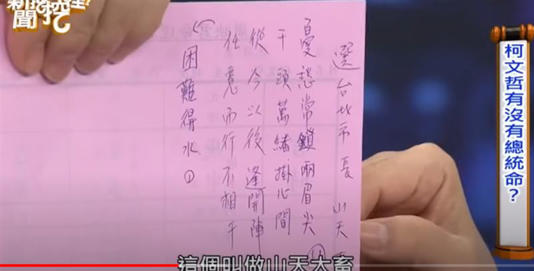 聞挖
選台北市長 山天
憂愁常鎖兩眉尖
千頭萬緒掛心間
從今以後逢開陣
任意而行不相干
困難得水①
柯文哲有沒有總統命?
這個叫做山天大畜